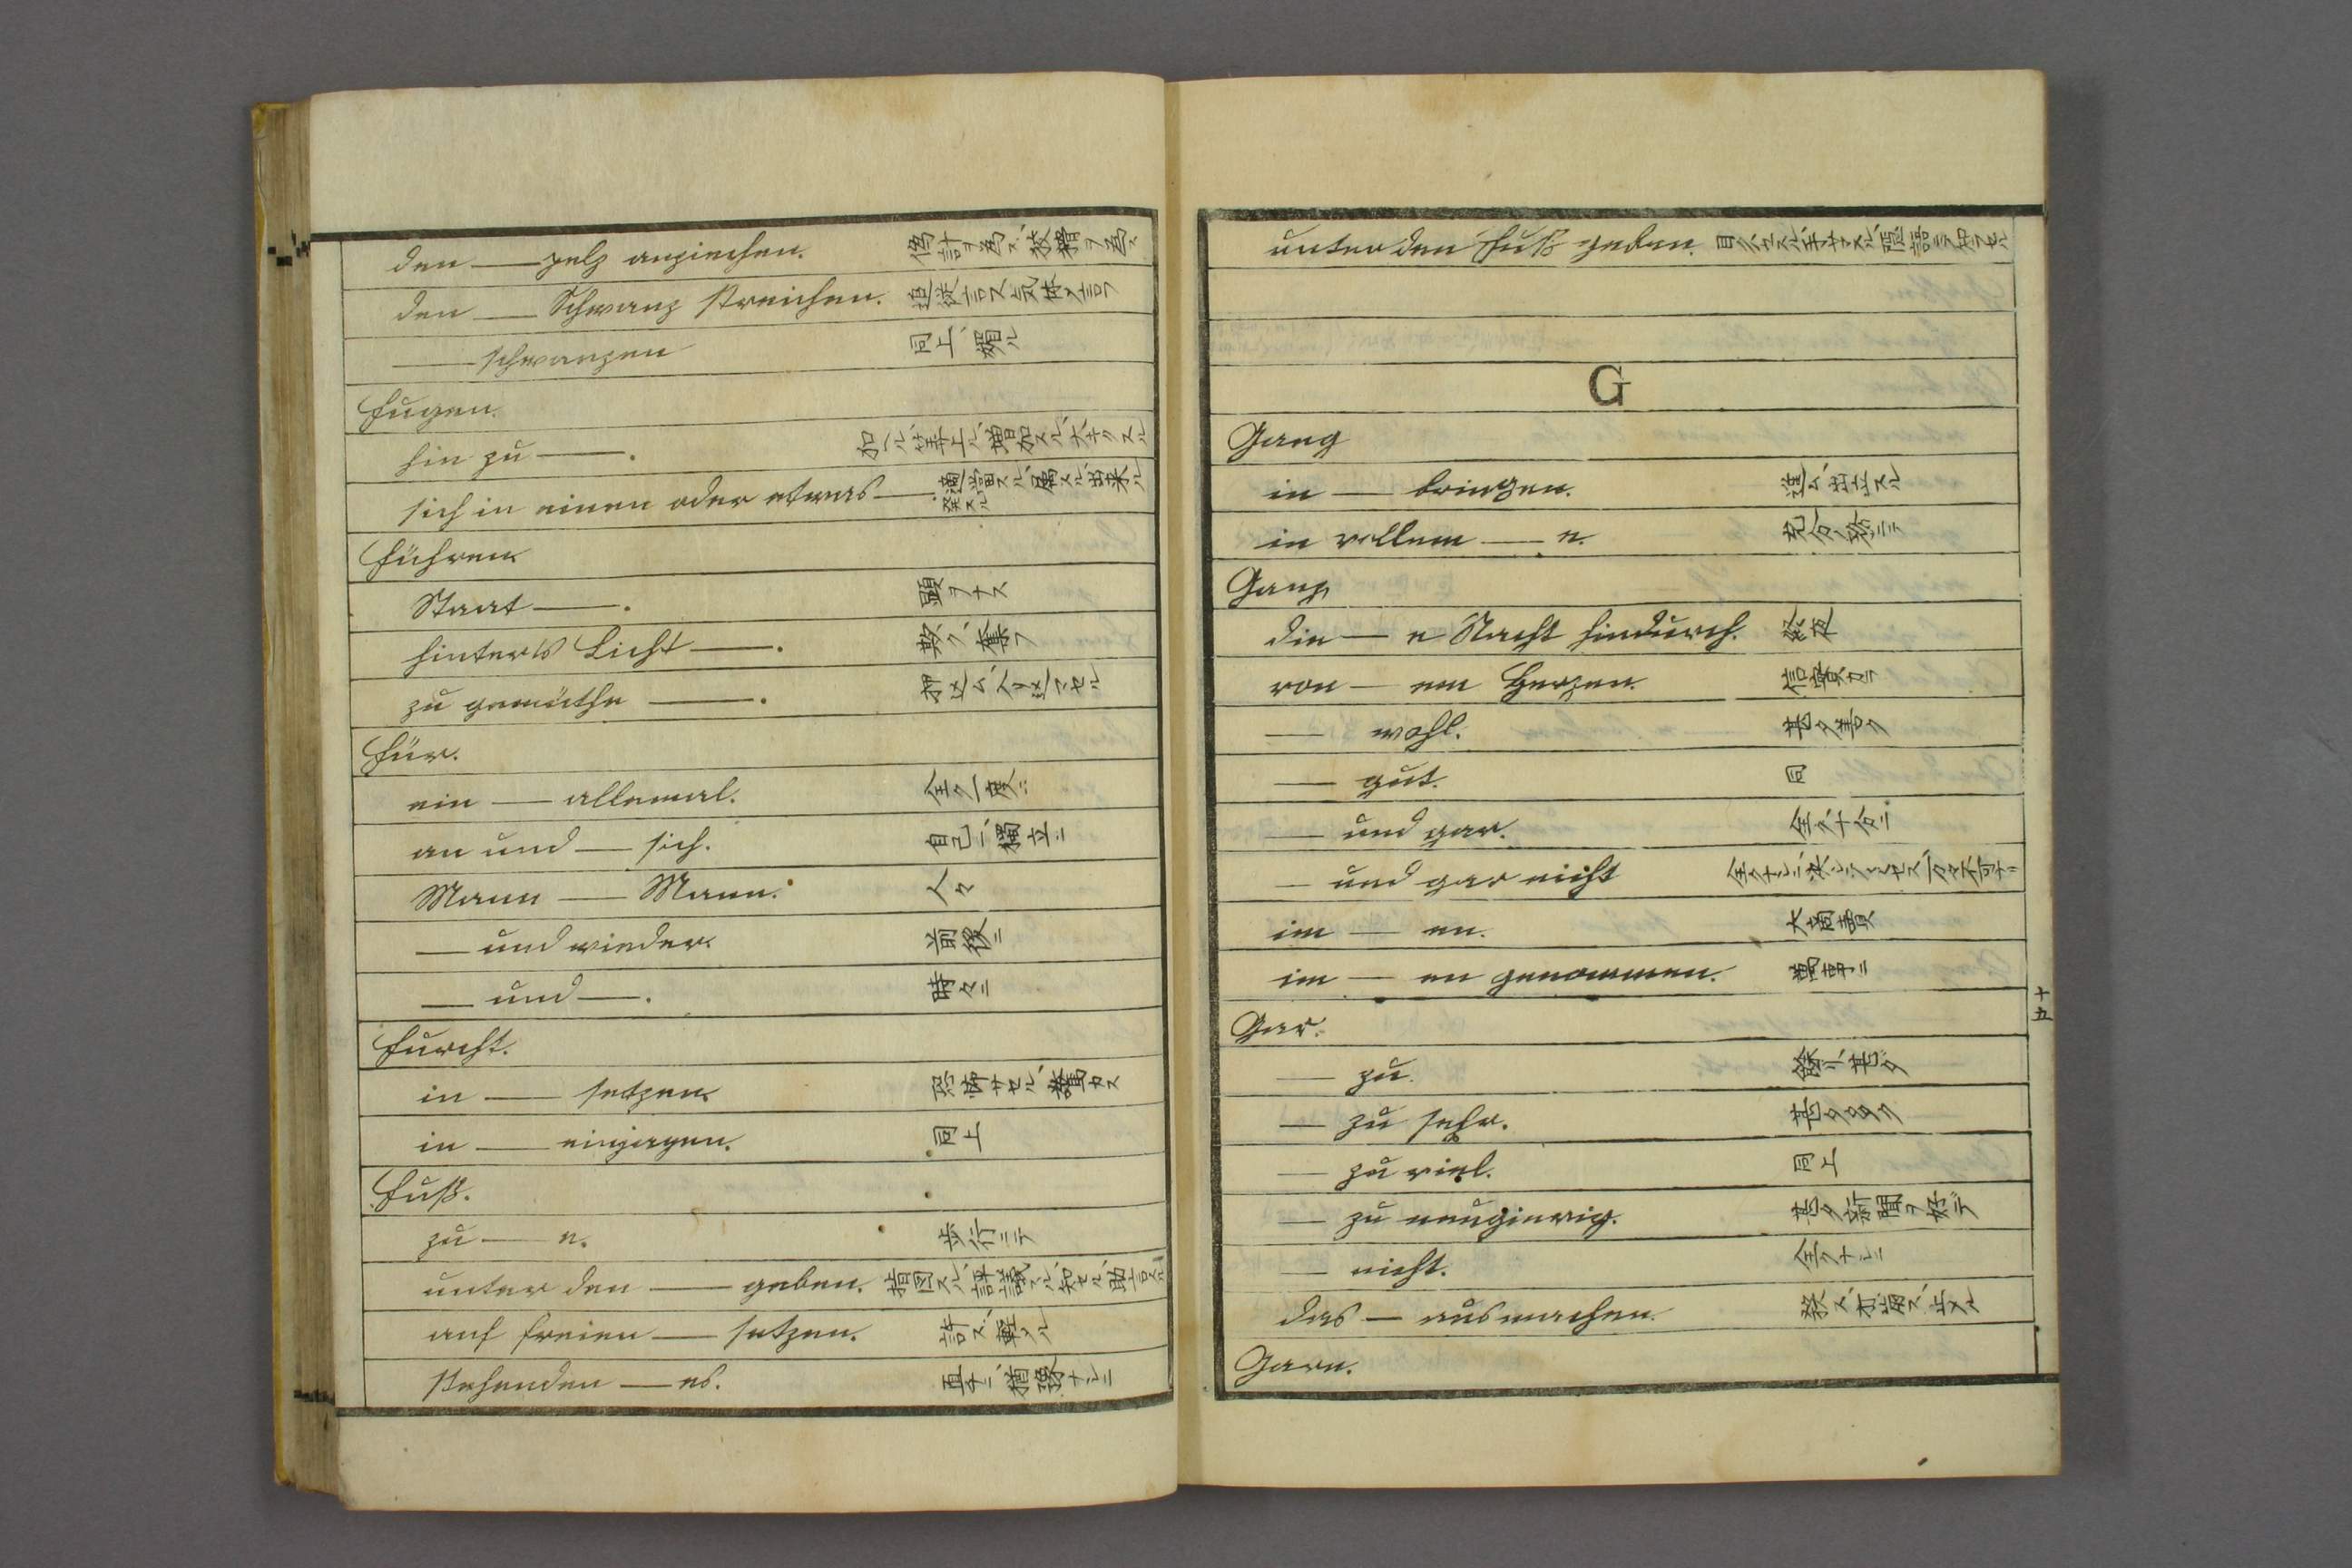 den — pelz anziehen. 偽計ヲ為ス
den — Schwanz streichen.
— schwanzen 同上、媚ル
Fugen.
hin zu —. 加ヘル、増加スル、大キクスル
sich in einen oder etwas —. 適当スル、属スル、出来ル
Führen
Staat —. 顕ヲナス
hinters Licht —. 欺ク、奪フ
zu gemüthe —. 押込ム、入リ込マセル
Für.
ein — allemal. 全ク一度ニ
an und — sich. 自己ニ、獨立ニ
Mann — Mann. 人々
— und wieder. 前後ニ
— und —. 時々ニ
Furcht.
in — setzen. 恐怖サセル、驚カス
in — einjagen. 同上
Fuß.
zu — e. 歩行ニテ
unter den — geben. 指図スル、評議スル、知セル、助言スル
auf freien — setzen. 許ス、軽メル
stehenden — es. 直チニ、猶豫ナシニ
unter den Fuß geben.
G
Gang
in — bringen. 進ム、出立スル
in vollem — e.
Ganz
die — e Nacht hindurch. 終夜
von — em Herzen. 信實ニ
— wohl. 甚タ善ク
— gut. 同
— und gar. 全ク、十分ニ
— und gar nicht
im — en. 大商賣
im — en genommen. 萬事ニ
Gar.
— zu. 餘リ、甚タ
— zu sehr.
— zu viel. 同上
— zu neugierig. 甚タ新聞ヲ好テ
— nicht. 全クナシニ
das — ausmachen.
Garn.
十五